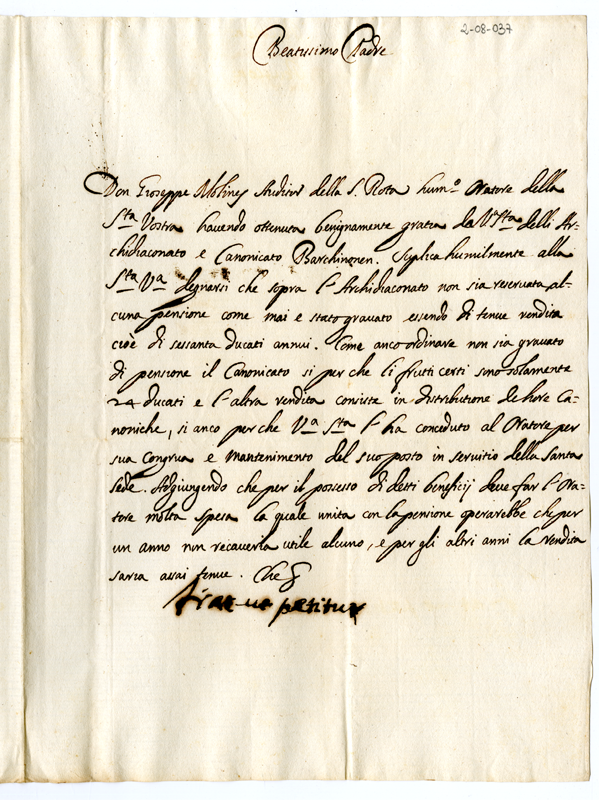 2-08-037
Beatissimo Padre
Don Gioseppe Molines Auditor della S. Rota hum.º Oratore della
S.ta Vostra havendo ottenuta benignamente gratia da V.ra S.ta delli Ar-
chidiaconato e Canonicato Barchinonen. Suplica humilmente alla
S.ta V.a degnarsi che sopra l'Archidiaconato non sia reservata al-
cuna pensione come mai e stato gravato essendo di tenue rendita
cioè di sessanta ducati annui. Come anco ordinare non sia gravato
di pensione il Canonicato si per che li frutti certi sono solamente
24 ducati e l'altra rendita consiste in distributione de hore Ca-
noniche, si anco per che V.a S.ta l'ha conceduto al Oratore per
sua Congrua e mantenimento del suo posto in servitio della Santa
Sede. Adgiungendo che per il possesso di detti beneficij deve far l'Ora-
tore molta spesa la quale unita con la pensione operarebbe che per
un anno non recaveria utile alcuno, e per gli altri anni la rendita
saria assai tenue. Che
Fiat ut petitur